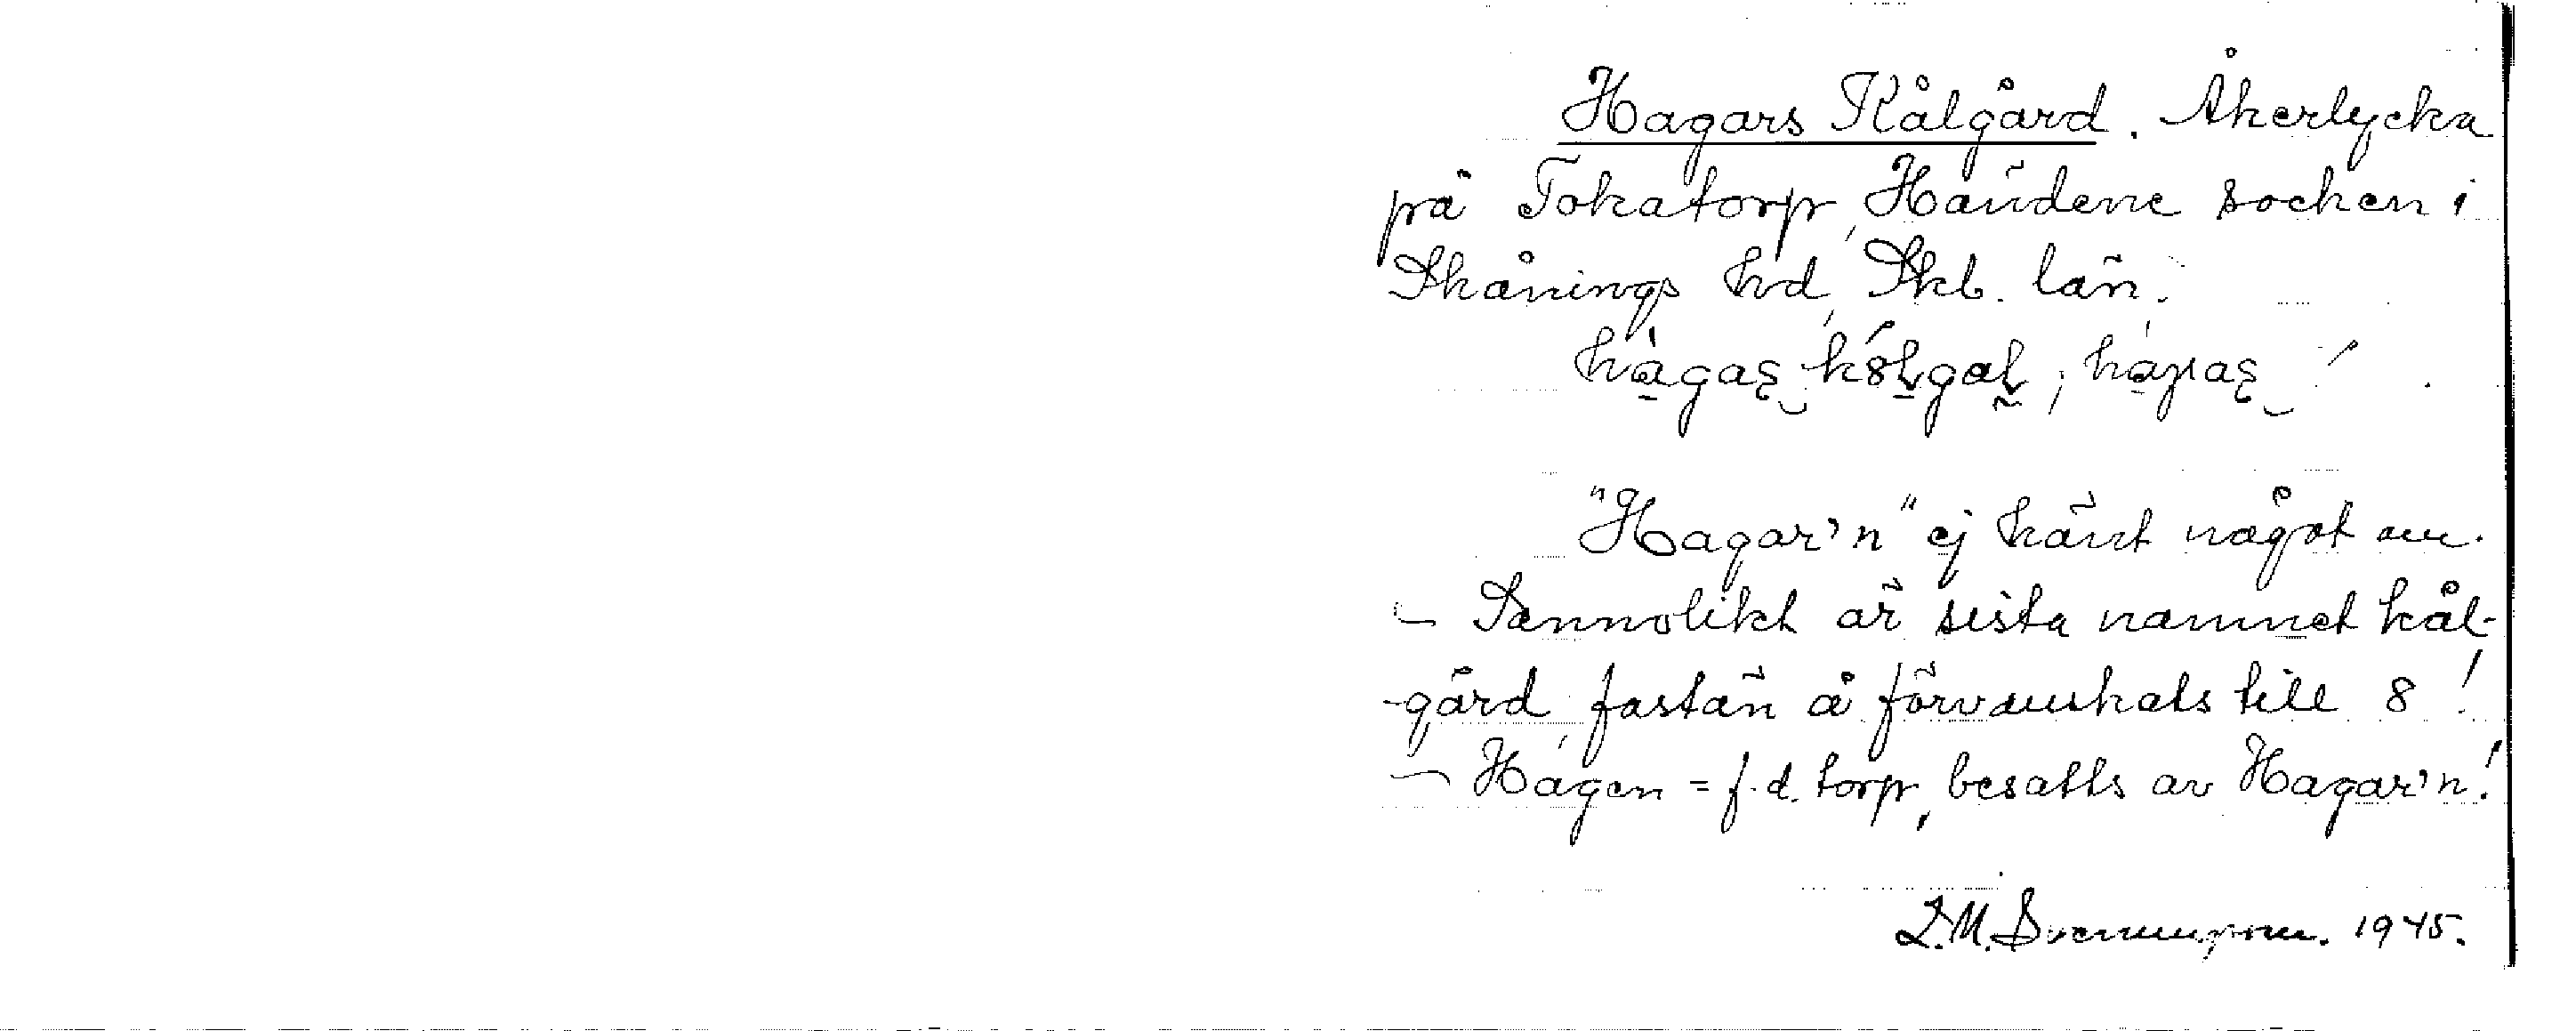 Hagars Kålgård. Åkerlycka
på Tokatorp, Händene socken i
Skånings hd, Skb. län.
"Hagar'n" ej känt något om.
- Sannolikt är sista namnet kål-
-gård, fastän å förvanskats till 8!
- Hagen = f.d. torp, besatts av Hagar'n!
1945.